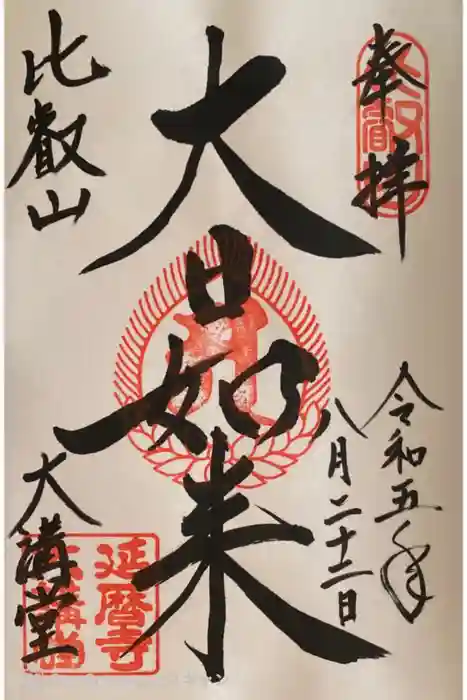 奉拝
比叡山
令和五年
八月二十二日
大日如来
比叡山
大講堂
延暦寺
大講堂